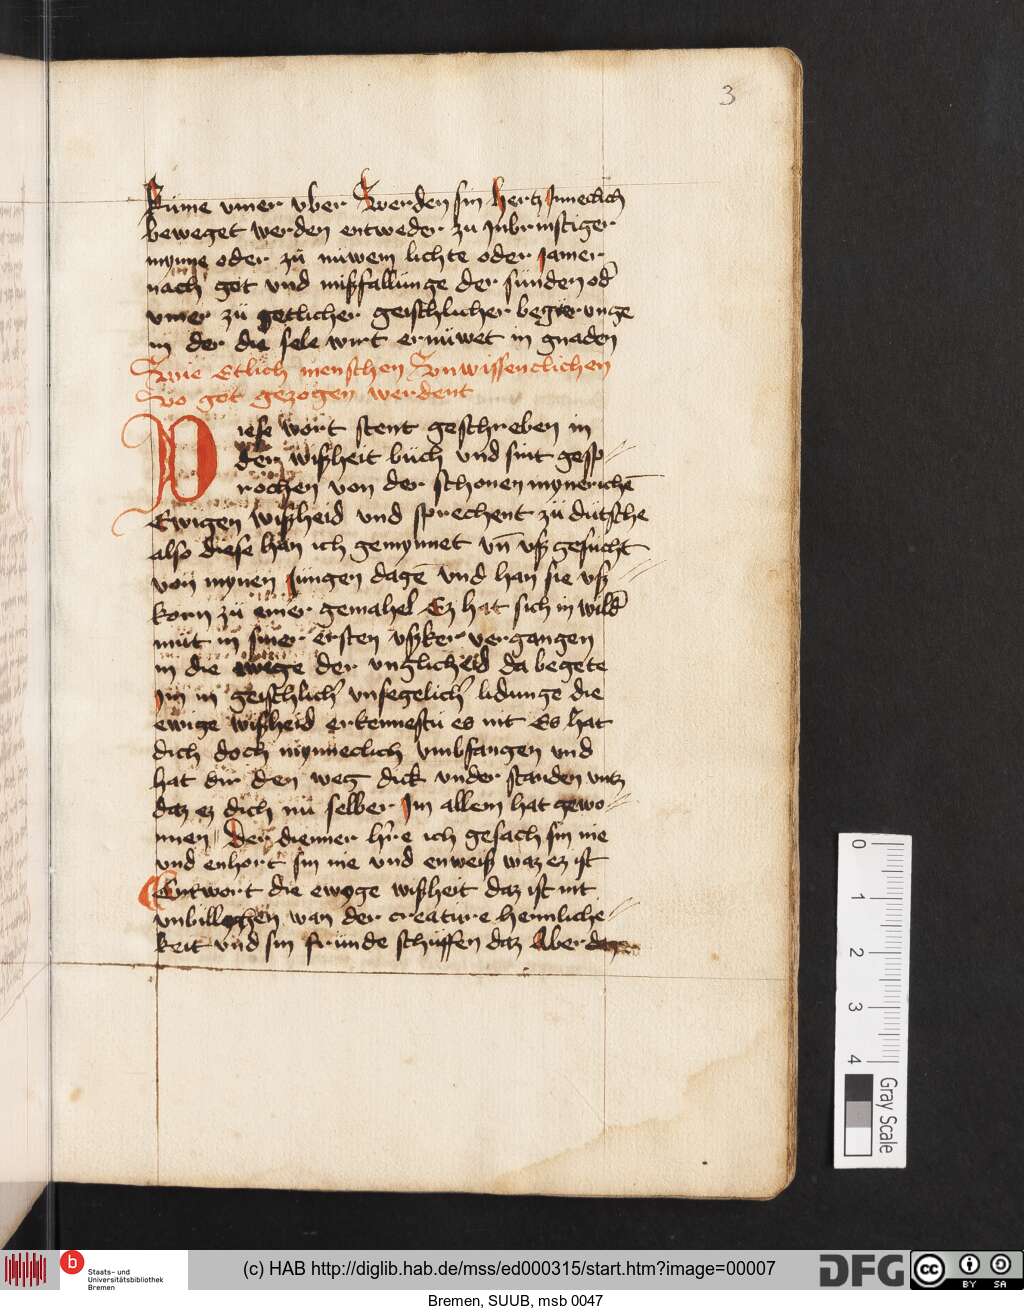 3
kume vmer vber Werden sin hertz Jnneclich
beweget werden entweder zu Jnbrinstiger
mynne oder zů nuwem lichte oder Jamer
nach got vnd mißfallunge der sunden od
vmer zů getlicher geischlicher begierunge
in der die sele wirt ernuwet in gnaden
Wie Etlich menschen Vnwissenclichen
Vo got gezogen werdent
Diese wort stent geschreben in
der wißheit bůch vnd sint gesp
rochen von der schonen mynerichē
Ewigen wißheid vnd sprechent zů dutsche
also diese han ich gemynnet vn̄ vß gesucht
von mynen Jungen dagē vnd han sie vß
korn zů einer gemahel Ez hat sich in wild
můt in siner ersten vßker vergangen
in die wege der vnglicheid da begete
Jm in geischlich vnsegelich lidunge die
ewige wißheid erkennestu es nit Es hat
dich doch mynneclich vmbfangen vnd
hat dir den weg dick vnder standen vntz
daz ez dich nů selber Jm allem hat gewo
nnen Der dienner h're ich gesach sin nie
vnd enhort sin nie vnd enweiß waz ez ist
Entwort die ewyge wißheit daz ist nit
vnbillychen wan der creature heimliche
keit vnd sin frunde schůffen daz Aber
0
1
2
3
4
Gray Scale
b
Staats- und
Universitätsbibliothek
Bremen
(c) HAB http://diglib.hab.de/mss/ed000315/start.htm?image=00007
DFG
cc BY SA
Bremen, SUUB, msb 0047